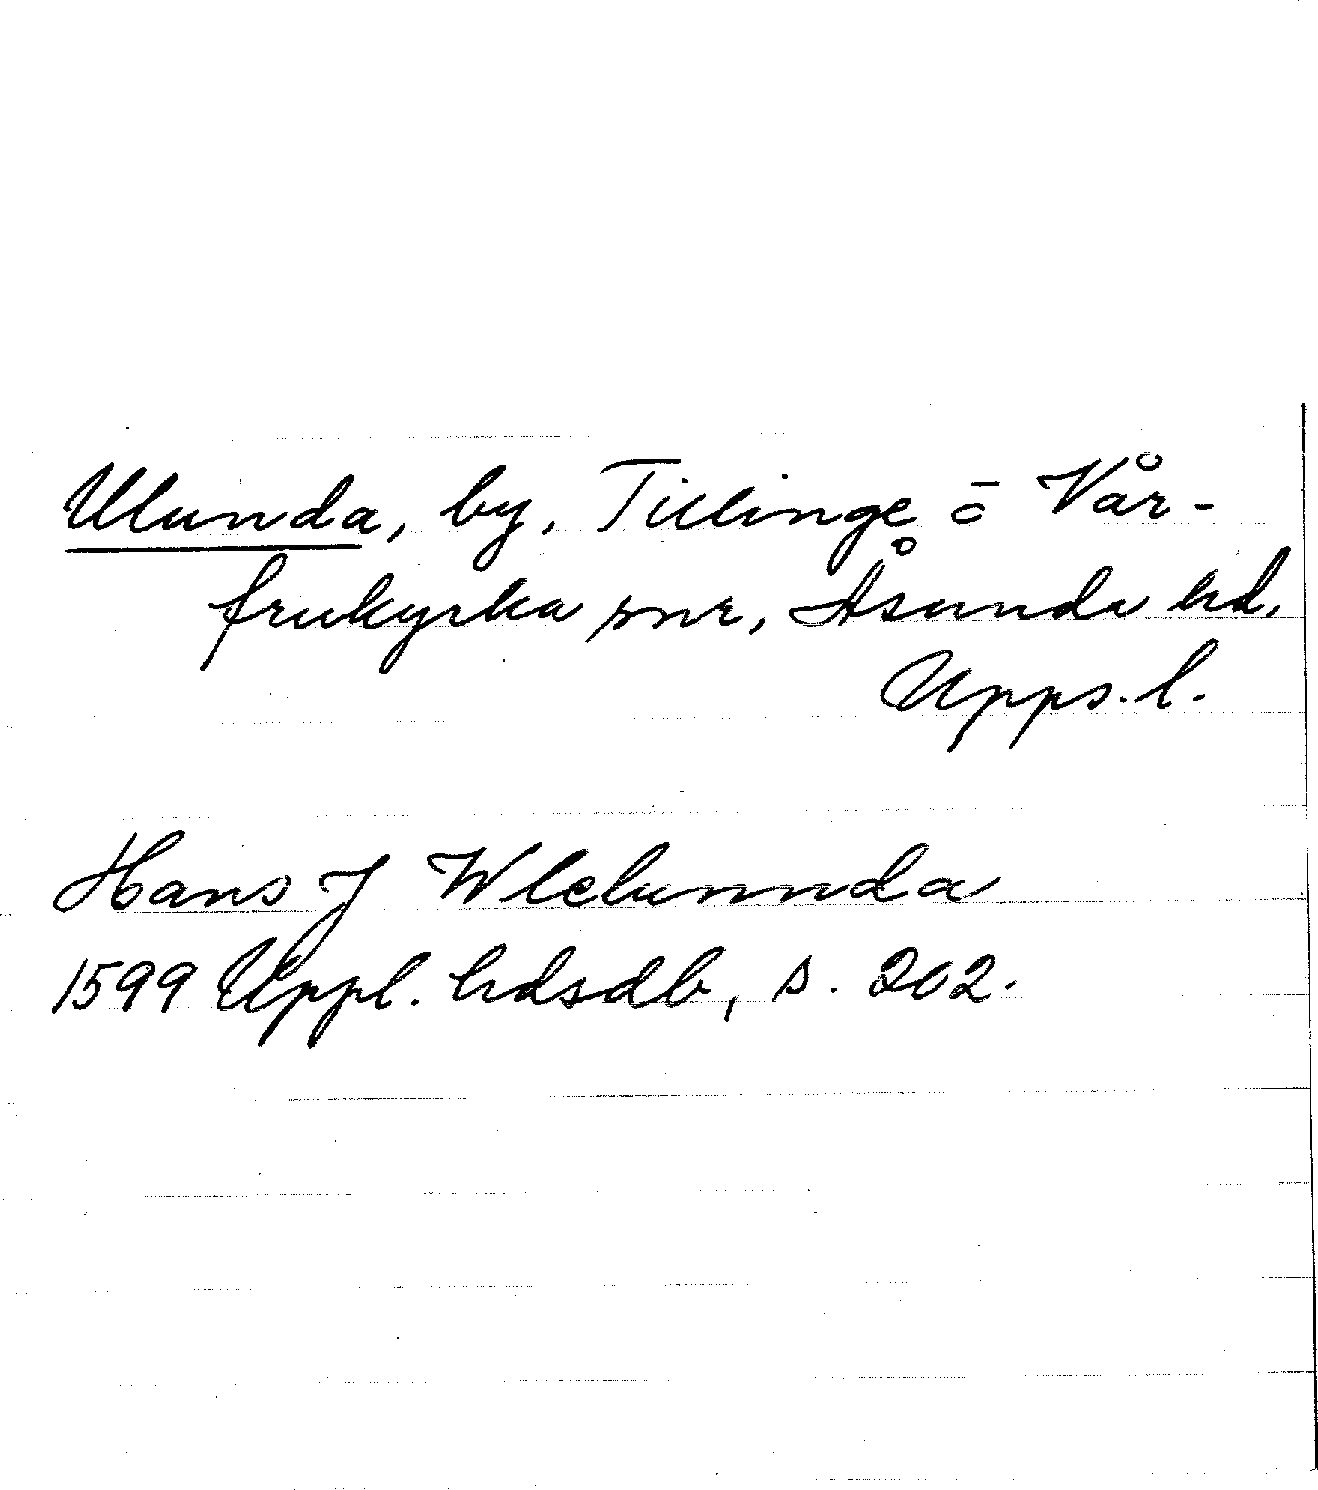 Ulunda, by, Tillinge o̅ Vår-
frukyrka snr, Åsunda hd,
Upps. l.
Hans J Wlelunnda
1599 Uppl. hdsdb, s. 202.